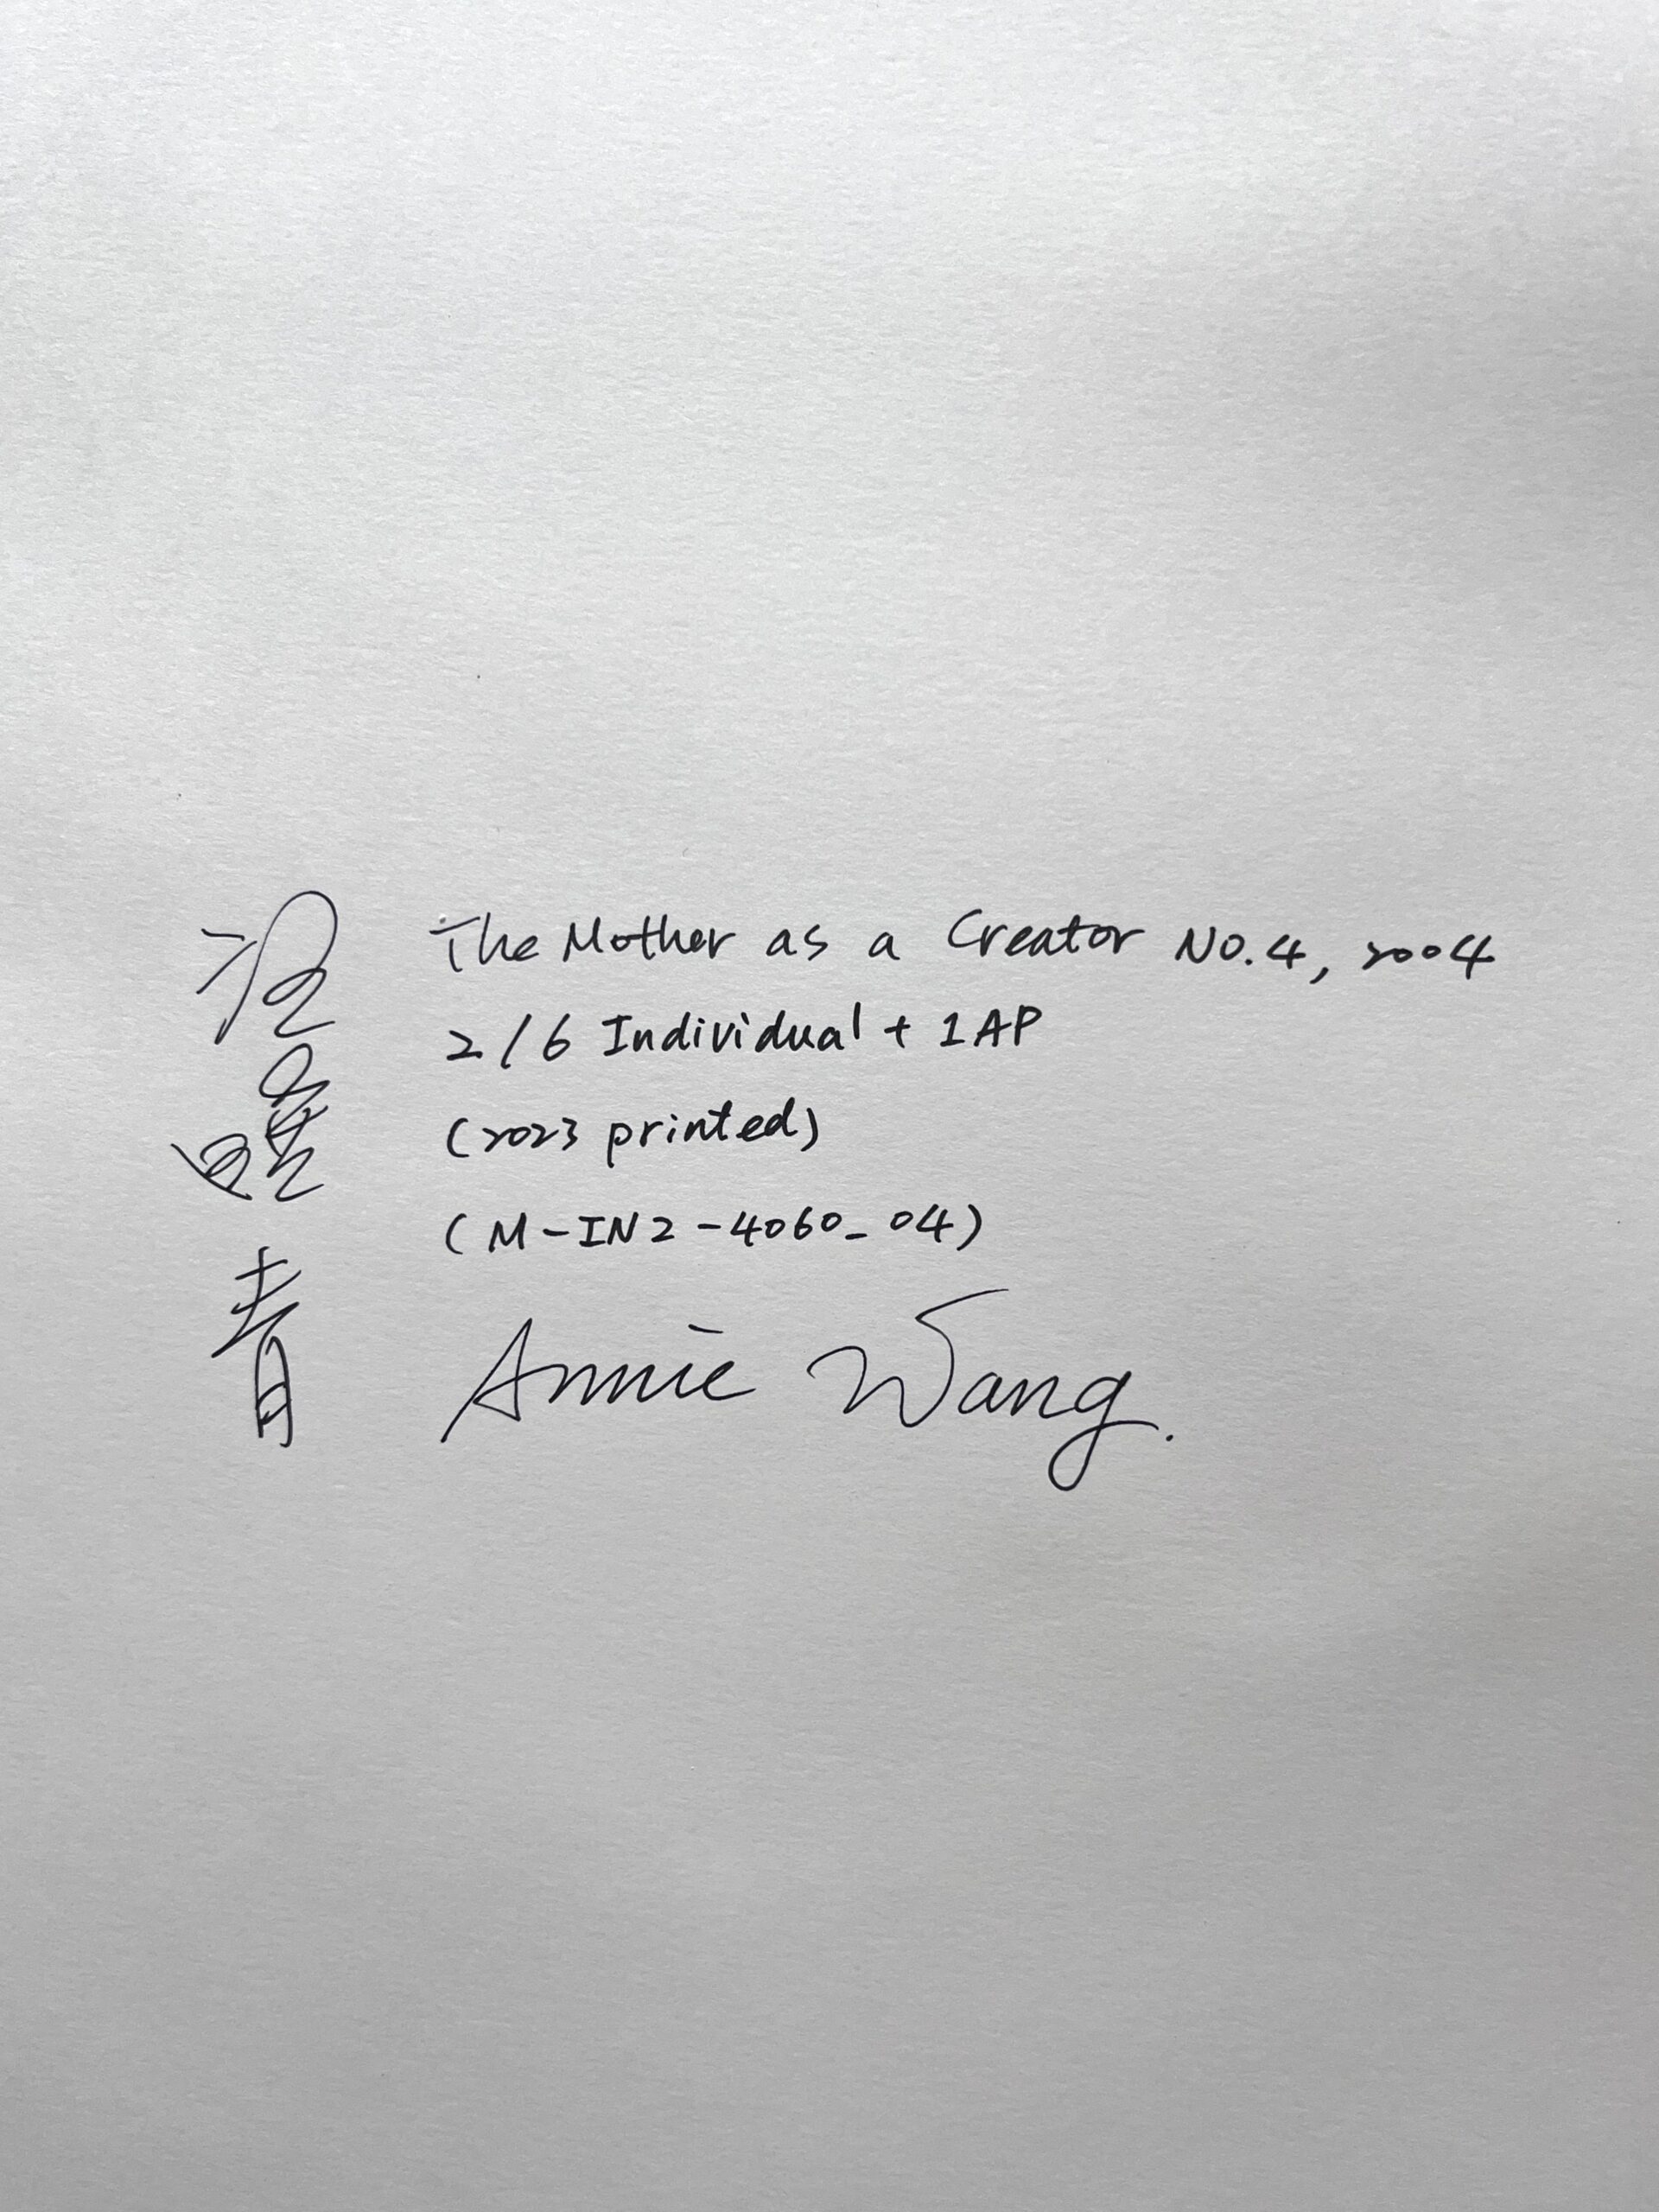 The Mother as a Creator NO.4, 2004
2/6 Individual + 1AP
(2023 printed)
(M-IN2-4060_04)
Annie Wang.
青